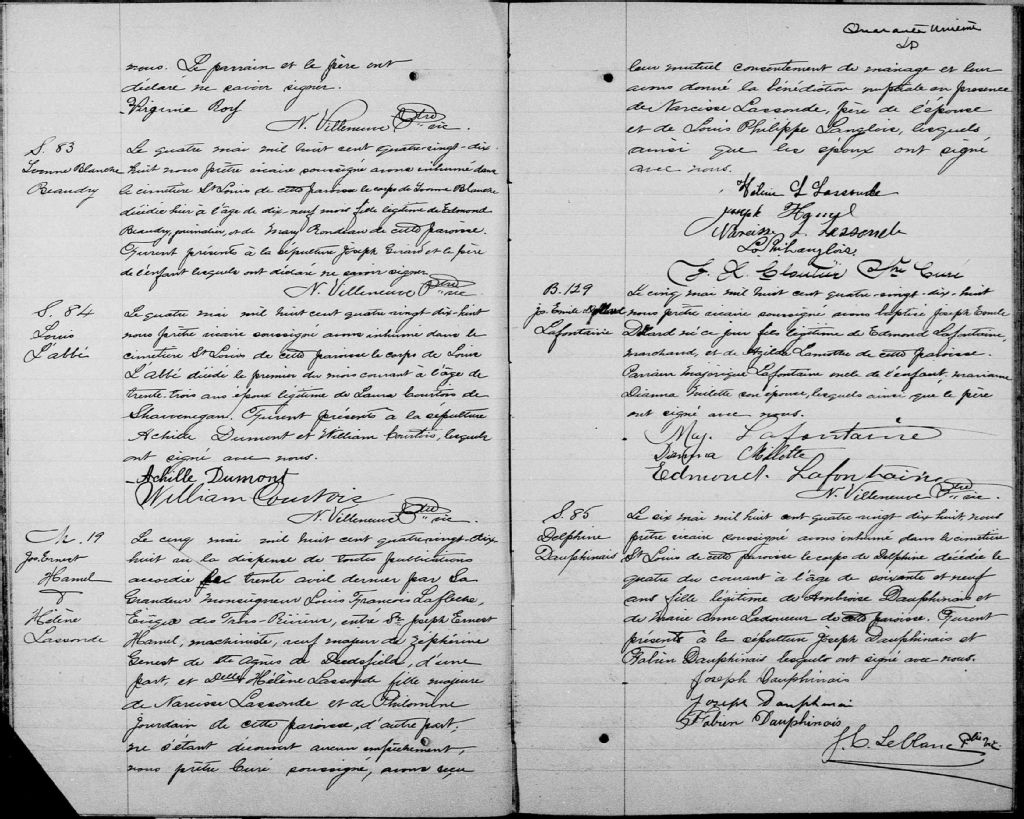 nous. Le parrain et le père ont
déclaré ne savoir signer.
Virginie Roy
N. Villeneuve Ptre vic.
S. 83
Yvonne Blanche
Beaudry
Le quatre mai mil huit cent quatre-vingt-dix-
huit nous prêtre vicaire soussigné avons inhumé dans
le cimetière St Louis de cette paroisse le corps de Yvonne Blanche
décédée hier à l'âge de dix-neuf mois fille légitime de Edmond
Beaudry, journalier, et de Mary Rondeau de cette paroisse.
Furent présents à la sépulture Joseph Girard et le père
de l'enfant lesquels ont déclaré ne savoir signer
N. Villeneuve Ptre vic.
S. 84
Louis
L'abbé
Le quatre mai mil huit cent quatre vingt-dix-huit
nous prêtre vicaire soussigné avons inhumé dans le
cimetière St Louis de cette paroisse le corps de Louis
L'abbé décédé le premier du mois courant à l'âge de
trente-trois ans époux légitime de Laura Courtois de
Shawenegan. Furent présents à la sépulture
Achille Dumont et William Courtois, lesquels
ont signé avec nous.
Achille Dumont
William Courtois
N. Villeneuve Ptre vic.
M. 19
Jos. Ernest
Hamel
&
Hélène
Lassonde
Le cinq mai mil huit cent quatre-vingt-dix-
huit vu la dispense de toutes publications
accordée le trente avril dernier par Sa
Grandeur Monseigneur Louis François Lafleche,
Evêque des Trois-Rivières, entre Sr. Joseph Ernest
Hamel, machiniste, veuf majeur de Zéphérine
Genest de Ste Agnès de Deedsfield, d'une
part, et Delle Hélène Lassonde fille majeure
de Narcisse Lassonde et de Philomène
Jourdain de cette paroisse, d'autre part;
ne s'étant découvert aucun empêchement,
nous prêtre Curé soussigné, avons reçu
Quarante unième
leur mutuel consentement de mariage et leur
avons donné la bénédiction nuptiale en présence
de Narcisse Lassonde, père de l'épouse
et de Louis Philippe Langlois, lesquels
ainsi que les époux ont signé
avec nous.
Hélène L Lassonde
Joseph Hamel
Narcisse L. Lessonde
Ls Phil Langlois
F. X. Cloutier Ptre Curé
B. 129
Jos. Emile Dollard
Lafontaine
Le cinq mai mil huit cent quatre-vingt-dix-huit
nous prêtre vicaire soussigné avons baptisé Joseph Emile
Dollard né ce jour fils légitime de Edmond Lafontaine,
marchand, et de Azilda Lamothe de cette paroisse.
Parrain Majorique Lafontaine oncle de l'enfant, marraine
Dianna Milette son épouse, lesquels ainsi que le père
ont signé avec nous.
Maj. Lafontaine
Dianna Milette
Edmond Lafontaine
N. Villeneuve Ptre vic.
S. 85
Delphine
Dauphinais
Le six mai mil huit cent quatre-vingt-dix huit, nous
prêtre vicaire soussigné avons inhumé dans le cimetière
St Louis de cette paroisse le corps de Delphine décédée le
quatre du courant à l'âge de soixante et neuf
ans fille légitime de Ambroise Dauphinais et
de Marie Anne Ladouceur de cette paroisse. Furent
présents à la sépulture Joseph Dauphinais et
Fabien Dauphinais lesquels ont signé avec nous.
Joseph Dauphinais
Joseph Dauphinai
Fabien Dauphinais
J. C. Leblanc Ptre vic.